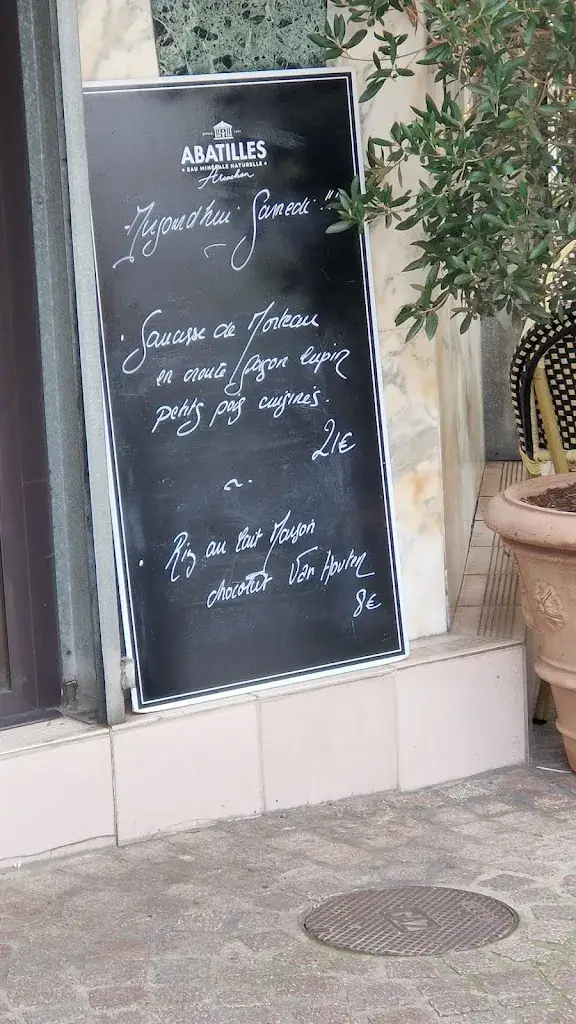 DEPUIS 1925
ABATILLES
• EAU MINÉRALE NATURELLE •
Arcachon
Aujourd'hui Samedi !!
Saucisse de Morteau
en croute façon lupin
petits pois cuisinés.
21€
~
Riz au lait Maison
chocolat Van Houten
8€